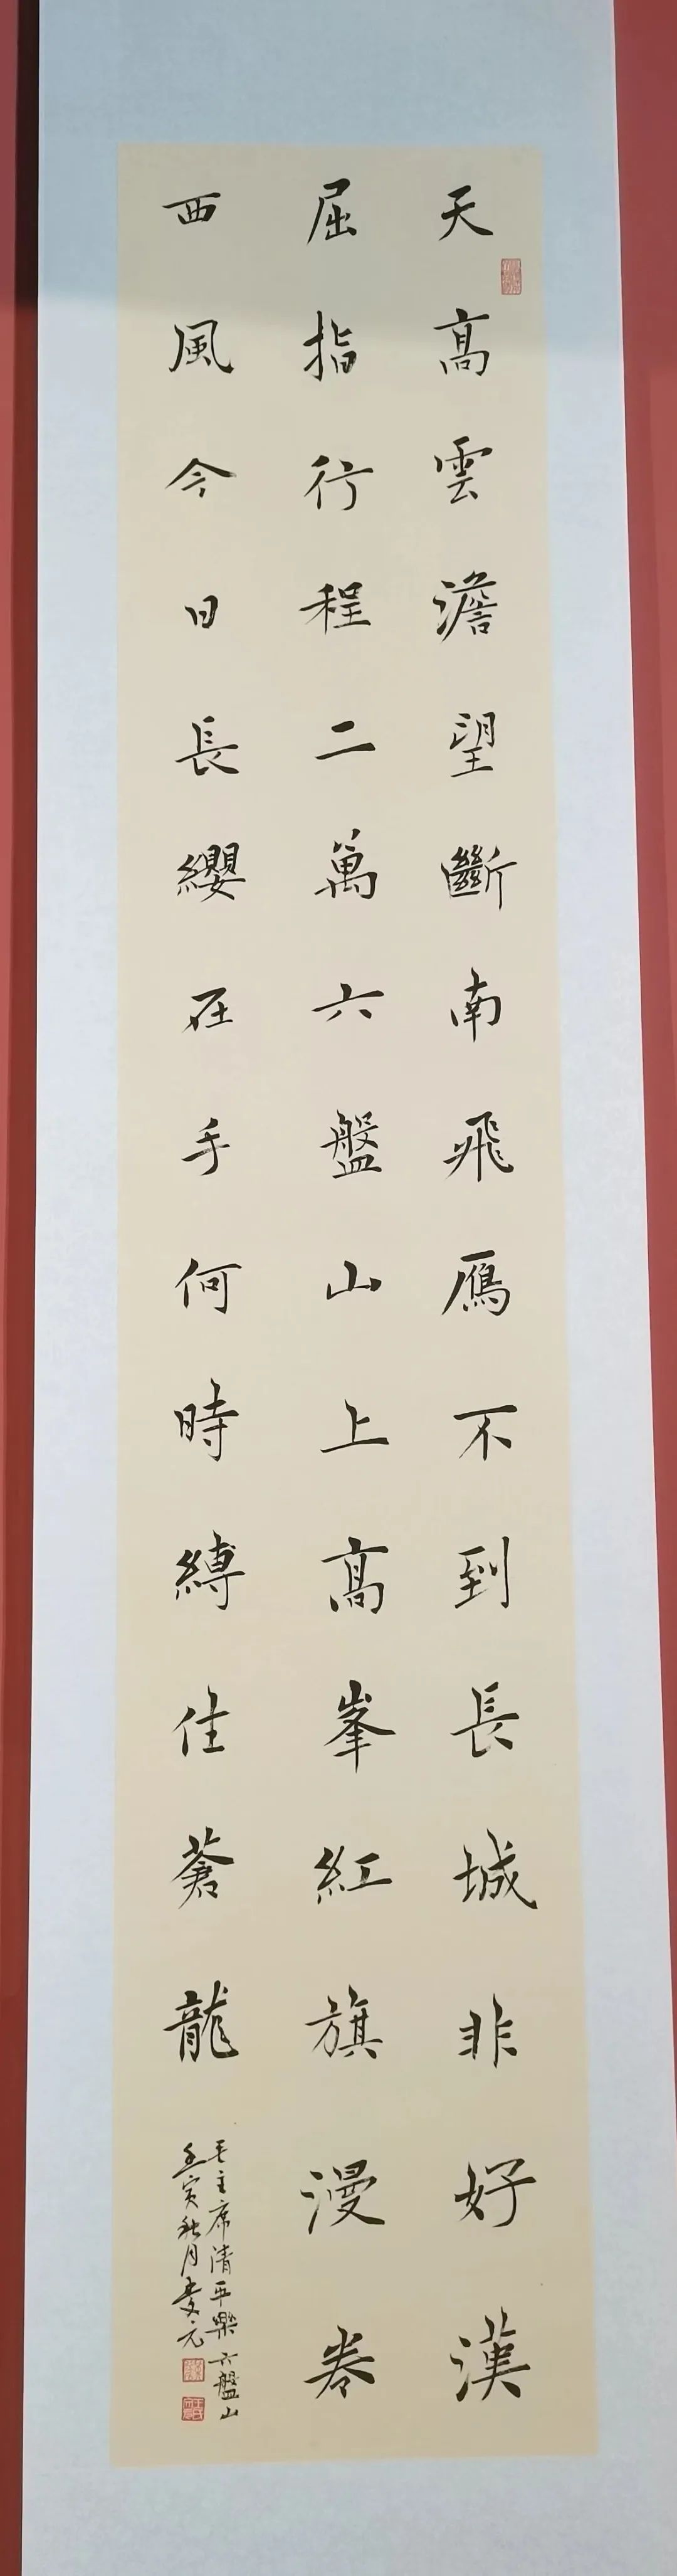 天高雲澹望斷南飛鴈不到長城非好漢
屈指行程二萬六盤山上高峯紅旗漫卷
西風今日長纓在手何時縛住蒼龍
毛主席清平樂六盤山
壬寅秋月